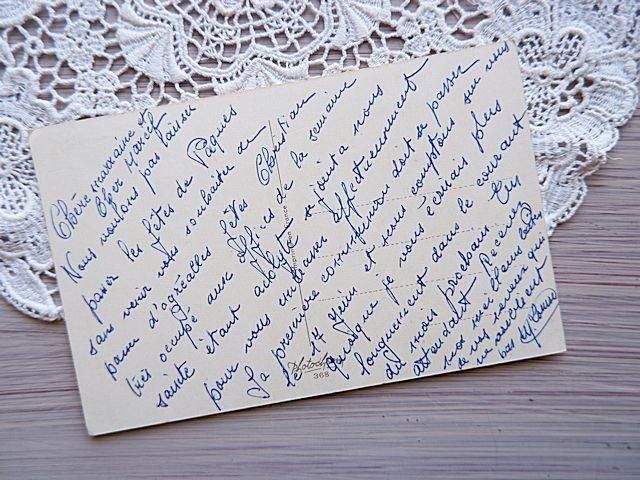 Chère marraine et
Cher Marcel
Nous voulons pas laisser
passer les fêtes de Pâques
sans venir vous souhaiter de
passer d'agréables fêtes Christian
très occupé aux offices de la semaine
sainte étant adolyte se joint a nous
pour vous embrasser affectueusement
La première communion doit se passer
le 14 Juin et nous comptons sur vous
puisque je vous écrirais plus
longuement dans le courant
du mois prochain. En
attendant Recevez
nos meilleurs
de vos neveux qui
ne vous oublient
pas
Photochrom
368